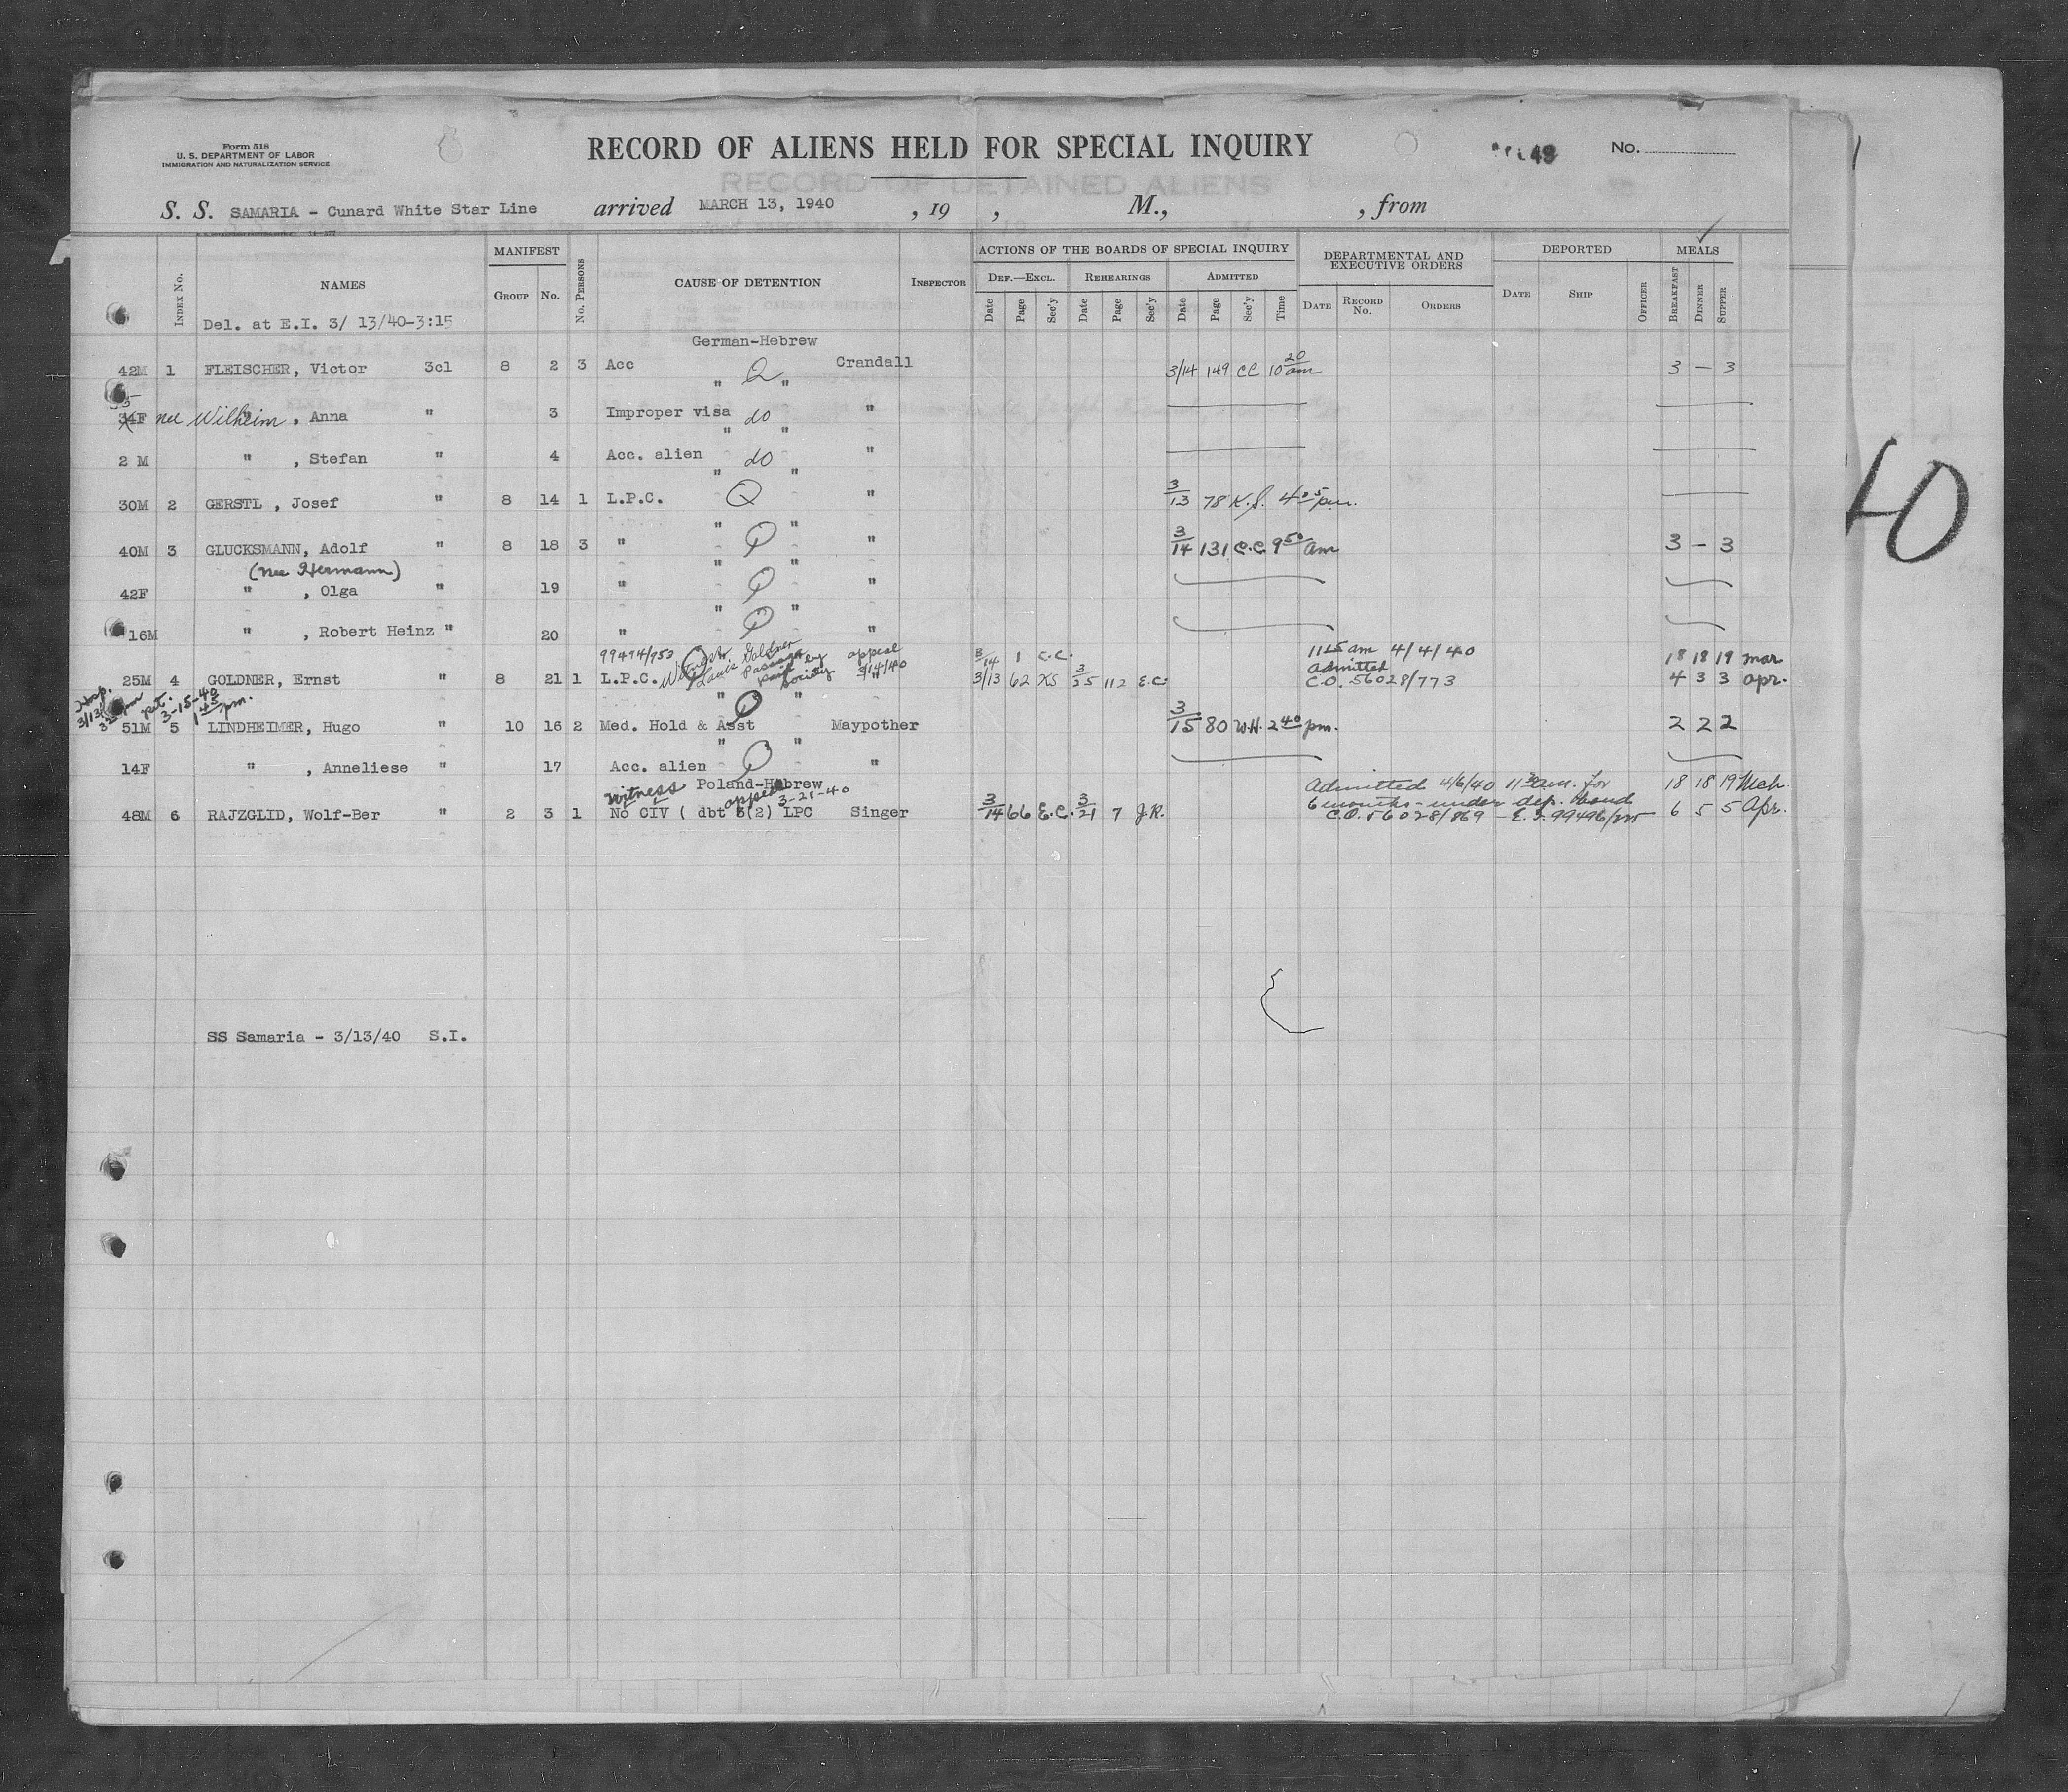 Form 518
U. S. DEPARTMENT OF LABOR
IMMIGRATION AND NATURALIZATION SERVICE
RECORD OF ALIENS HELD FOR SPECIAL INQUIRY
RECORD OF DETAINED ALIENS
49 No.
S. S. SAMARIA - Cunard White Star Line arrived MARCH 13, 1940 , 19 , M., , from
Index No. NAMES MANIFEST Group No. No. Persons CAUSE OF DETENTION Inspector
ACTIONS OF THE BOARDS OF SPECIAL INQUIRY
Def.—Excl. Date Page Sec'y Rehearings Date Page Sec'y Admitted Date Page Sec'y Time
DEPARTMENTAL AND EXECUTIVE ORDERS Date Record No. Orders
DEPORTED Date Ship Officer MEALS Breakfast Dinner Supper
Del. at E.I. 3/ 13/40-3:15
German-Hebrew
42M 1 FLEISCHER, Victor 3cl 8 2 3 Acc Crandall 3/14 149 CC 10 20 am 3 — 3
" Q "
35 34F nee Wilhelm , Anna " 3 Improper visa do "
" "
2 M " , Stefan " 4 Acc. alien do "
" "
30M 2 GERSTL , Josef " 8 14 1 L.P.C. Q " 3/13 78 K.S. 4 05 pm.
" "
40M 3 GLUCKSMANN, Adolf " 8 18 3 " Q " 3/14 131 C.C. 9 50 am 3 — 3
(nee Hermann) " "
42F " , Olga " 19 " Q "
" "
16M " , Robert Heinz " 20 " Q "
99494/953 Witness Louis Goldner Passage paid by society appeal 3/14/40 3/14 1 C.C. 11 25 am 4/4/40 18 18 19 mar
25M 4 GOLDNER, Ernst " 8 21 1 L.P.C. 3/13 62 KS 3/25 112 E.C. admitted C.O. 56028/773 4 3 3 apr.
Hosp. 3/13 pm ret. 3-15-40 1 45 pm. " Q "
51M 5 LINDHEIMER, Hugo " 10 16 2 Med. Hold & Asst Maypother 3/15 80 W.H. 2 40 pm. 2 2 2
" "
14F " , Anneliese " 17 Acc. alien Q "
Poland-Hebrew
witness appeal 3-21-40 Admitted 4/6/40 11 30 am. for 18 18 19 Mch.
48M 6 RAJZGLID, Wolf-Ber " 2 3 1 No CIV ( dbt 5(2) LPC Singer 3/14 66 E.C. 3/21 7 J.R. 6 months - under dep. bond 6 5 5 Apr.
C.O. 56028/869 - E.I. 99496/
SS Samaria - 3/13/40 S.I.
40